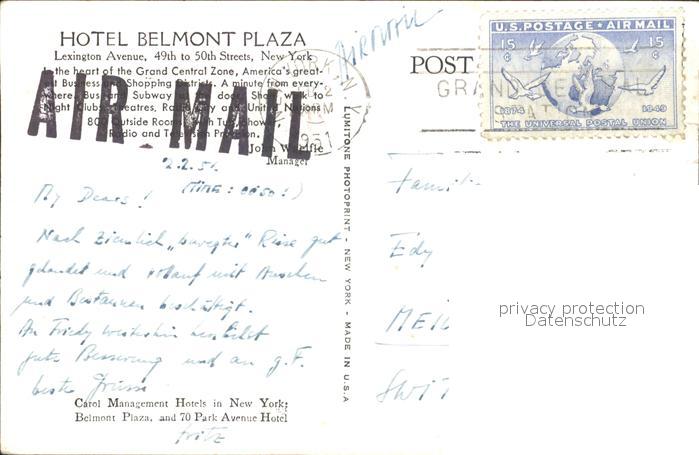 HOTEL BELMONT PLAZA
Lexington Avenue, 49th to 50th Streets, New York
In the heart of the Grand Central Zone, America's great-
est Business and Shopping Districts. A minute from every-
where; Bus and Subway at door. Short walk to
Night Clubs, Theatres, Radio City and United Nations
800 Outside Rooms with Tub
Radio and Television Program.
John
Manager
AIR MAIL
AIRMAIL
POST
U.S. POSTAGE AIR MAIL
15 c 15 c
1874 1949
THE UNIVERSAL POSTAL UNION
1951
2.2.51.
(TIME: 0050!)
My Dears!
Nach ziemlich „bewegter" Reise gut
gelandet und vollauf mit
und beschäftigt.
An Friedy weiterhin
gute Besserung und an g.F.
beste Grüsse
Fritz
Carol Management Hotels in New York:
Belmont Plaza, and 70 Park Avenue Hotel
LUMITONE PHOTOPRINT - NEW YORK - MADE IN U.S.A
Famili
Edy
MEIL
SWIT
privacy protection
Datenschutz